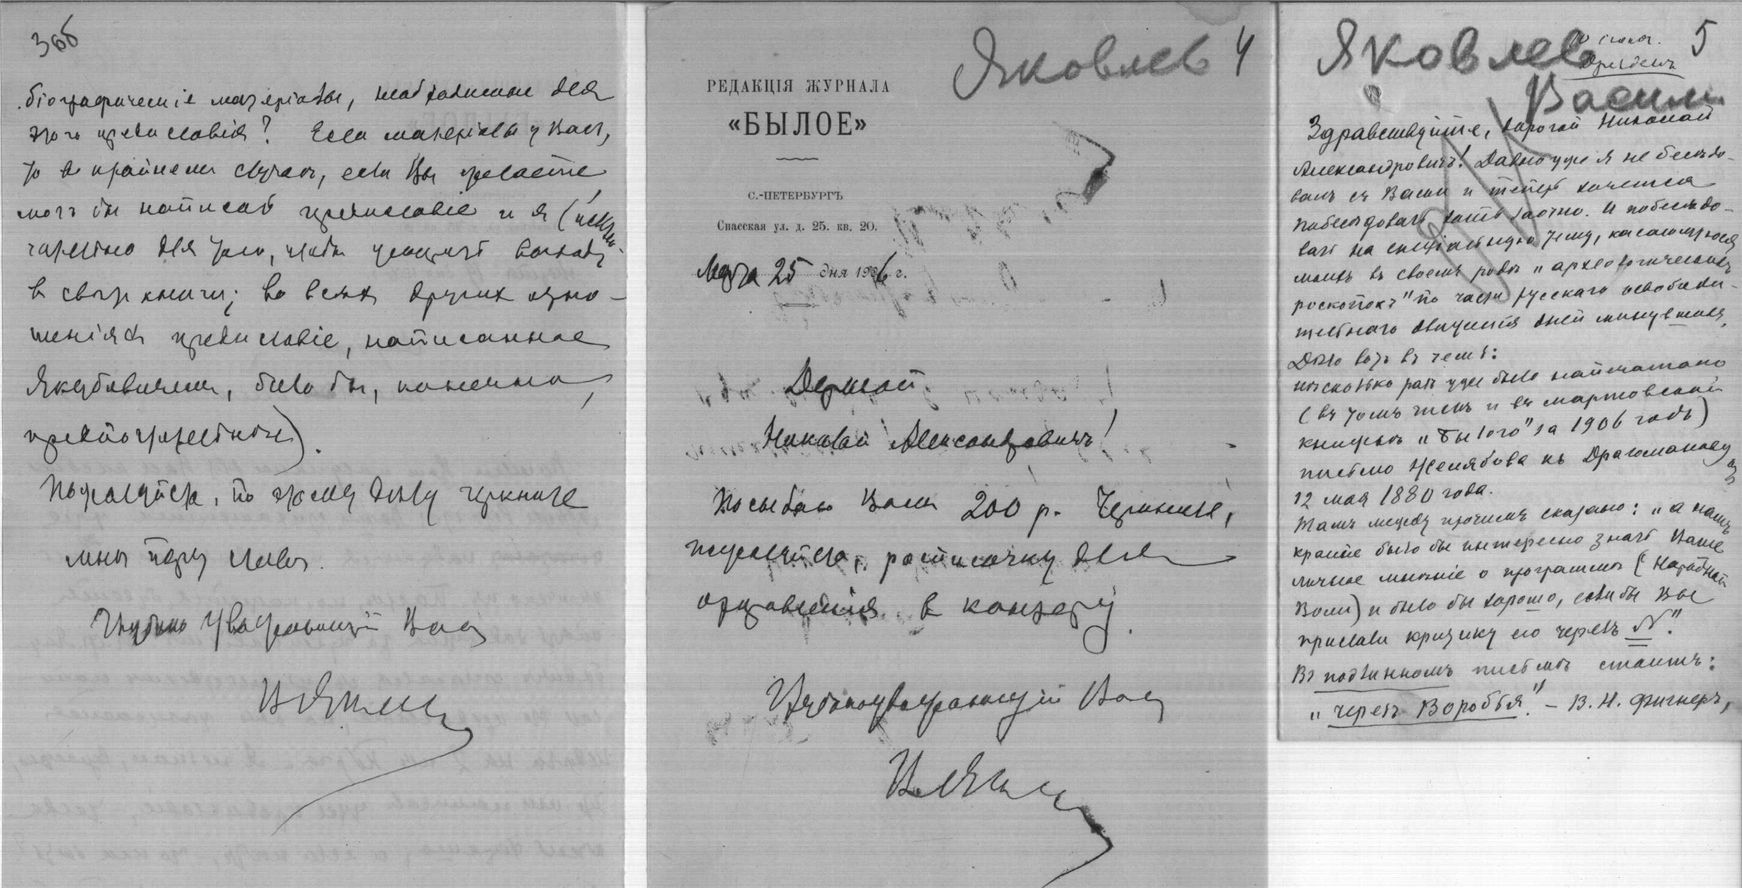 3об
біографическіе матеріалы, необходимые для
этого предисловія? Если матеріалы у Васъ,
то въ крайнемъ случаѣ, если Вы желаете,
могъ бы написать предисловіе и я (исклю-
чительно для того, чтобы ускорить выходъ
въ свѣтъ книги; во всѣхъ другихъ отно-
шеніяхъ предисловіе, написанное
Якубовичемъ, было бы, конечно,
предпочтительнѣе).
Пожалуйста, по этому дѣлу черкните
мнѣ пару словъ.
Глубоко уважающій Васъ
Яковлевъ 4
РЕДАКЦІЯ ЖУРНАЛА
«БЫЛОЕ»
С.-ПЕТЕРБУРГЪ
Спасская ул. д. 25. кв. 20.
Марта 25 дня 1906 г.
Дорогой
Николай Александровичъ!
Посылаю Вамъ 200 р. Черкните,
пожалуйста, росписочку для
оправданія въ контору.
Глубокоуважающій Васъ
Яковлев 5
Дрезденъ
Васили
Здравствуйте, дорогой Николай
Александровичъ! Давно уже я не бесѣдо-
валъ съ Вами и теперь хочется
побесѣдовать хоть заочно. И побесѣдо-
вать на спеціальную тему, касающуюся
моихъ въ своемъ родѣ „археологическихъ
раскопокъ" по части русскаго освободи-
тельнаго движенія дней минувшихъ.
Дѣло вотъ въ чемъ:
нѣсколько разъ уже было напечатано
(въ томъ числѣ и въ мартовской
книжкѣ „Былого" за 1906 годъ)
письмо Желябова къ Драгоманову отъ
12 мая 1880 года.
Тамъ между прочимъ сказано: „а намъ
крайне было бы интересно знать Ваше
личное мнѣніе о программѣ (Народной
Воли) и было бы хорошо, если бы Вы
прислали критику его черезъ N."
Въ подлинномъ письмѣ стоитъ:
„черезъ Воробья". – В. Н. Фигнеръ,